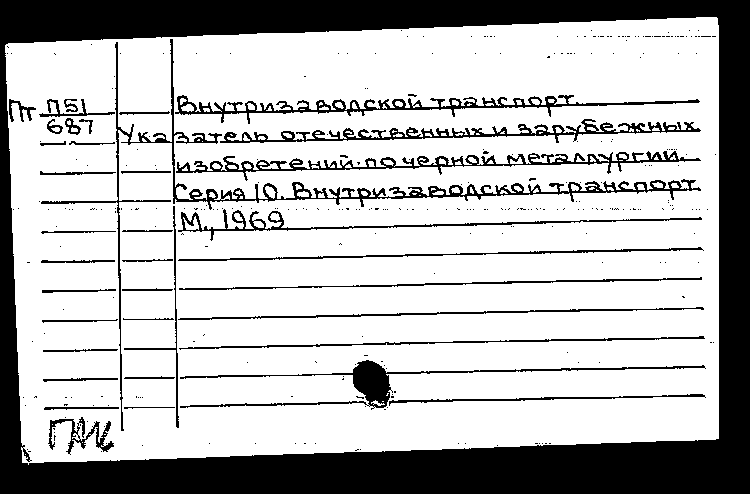 Пт П51
687
Внутризаводской транспорт.
Указатель отечественных и зарубежных
изобретений по черной металлургии.
Серия 10. Внутризаводской транспорт.
М., 1969